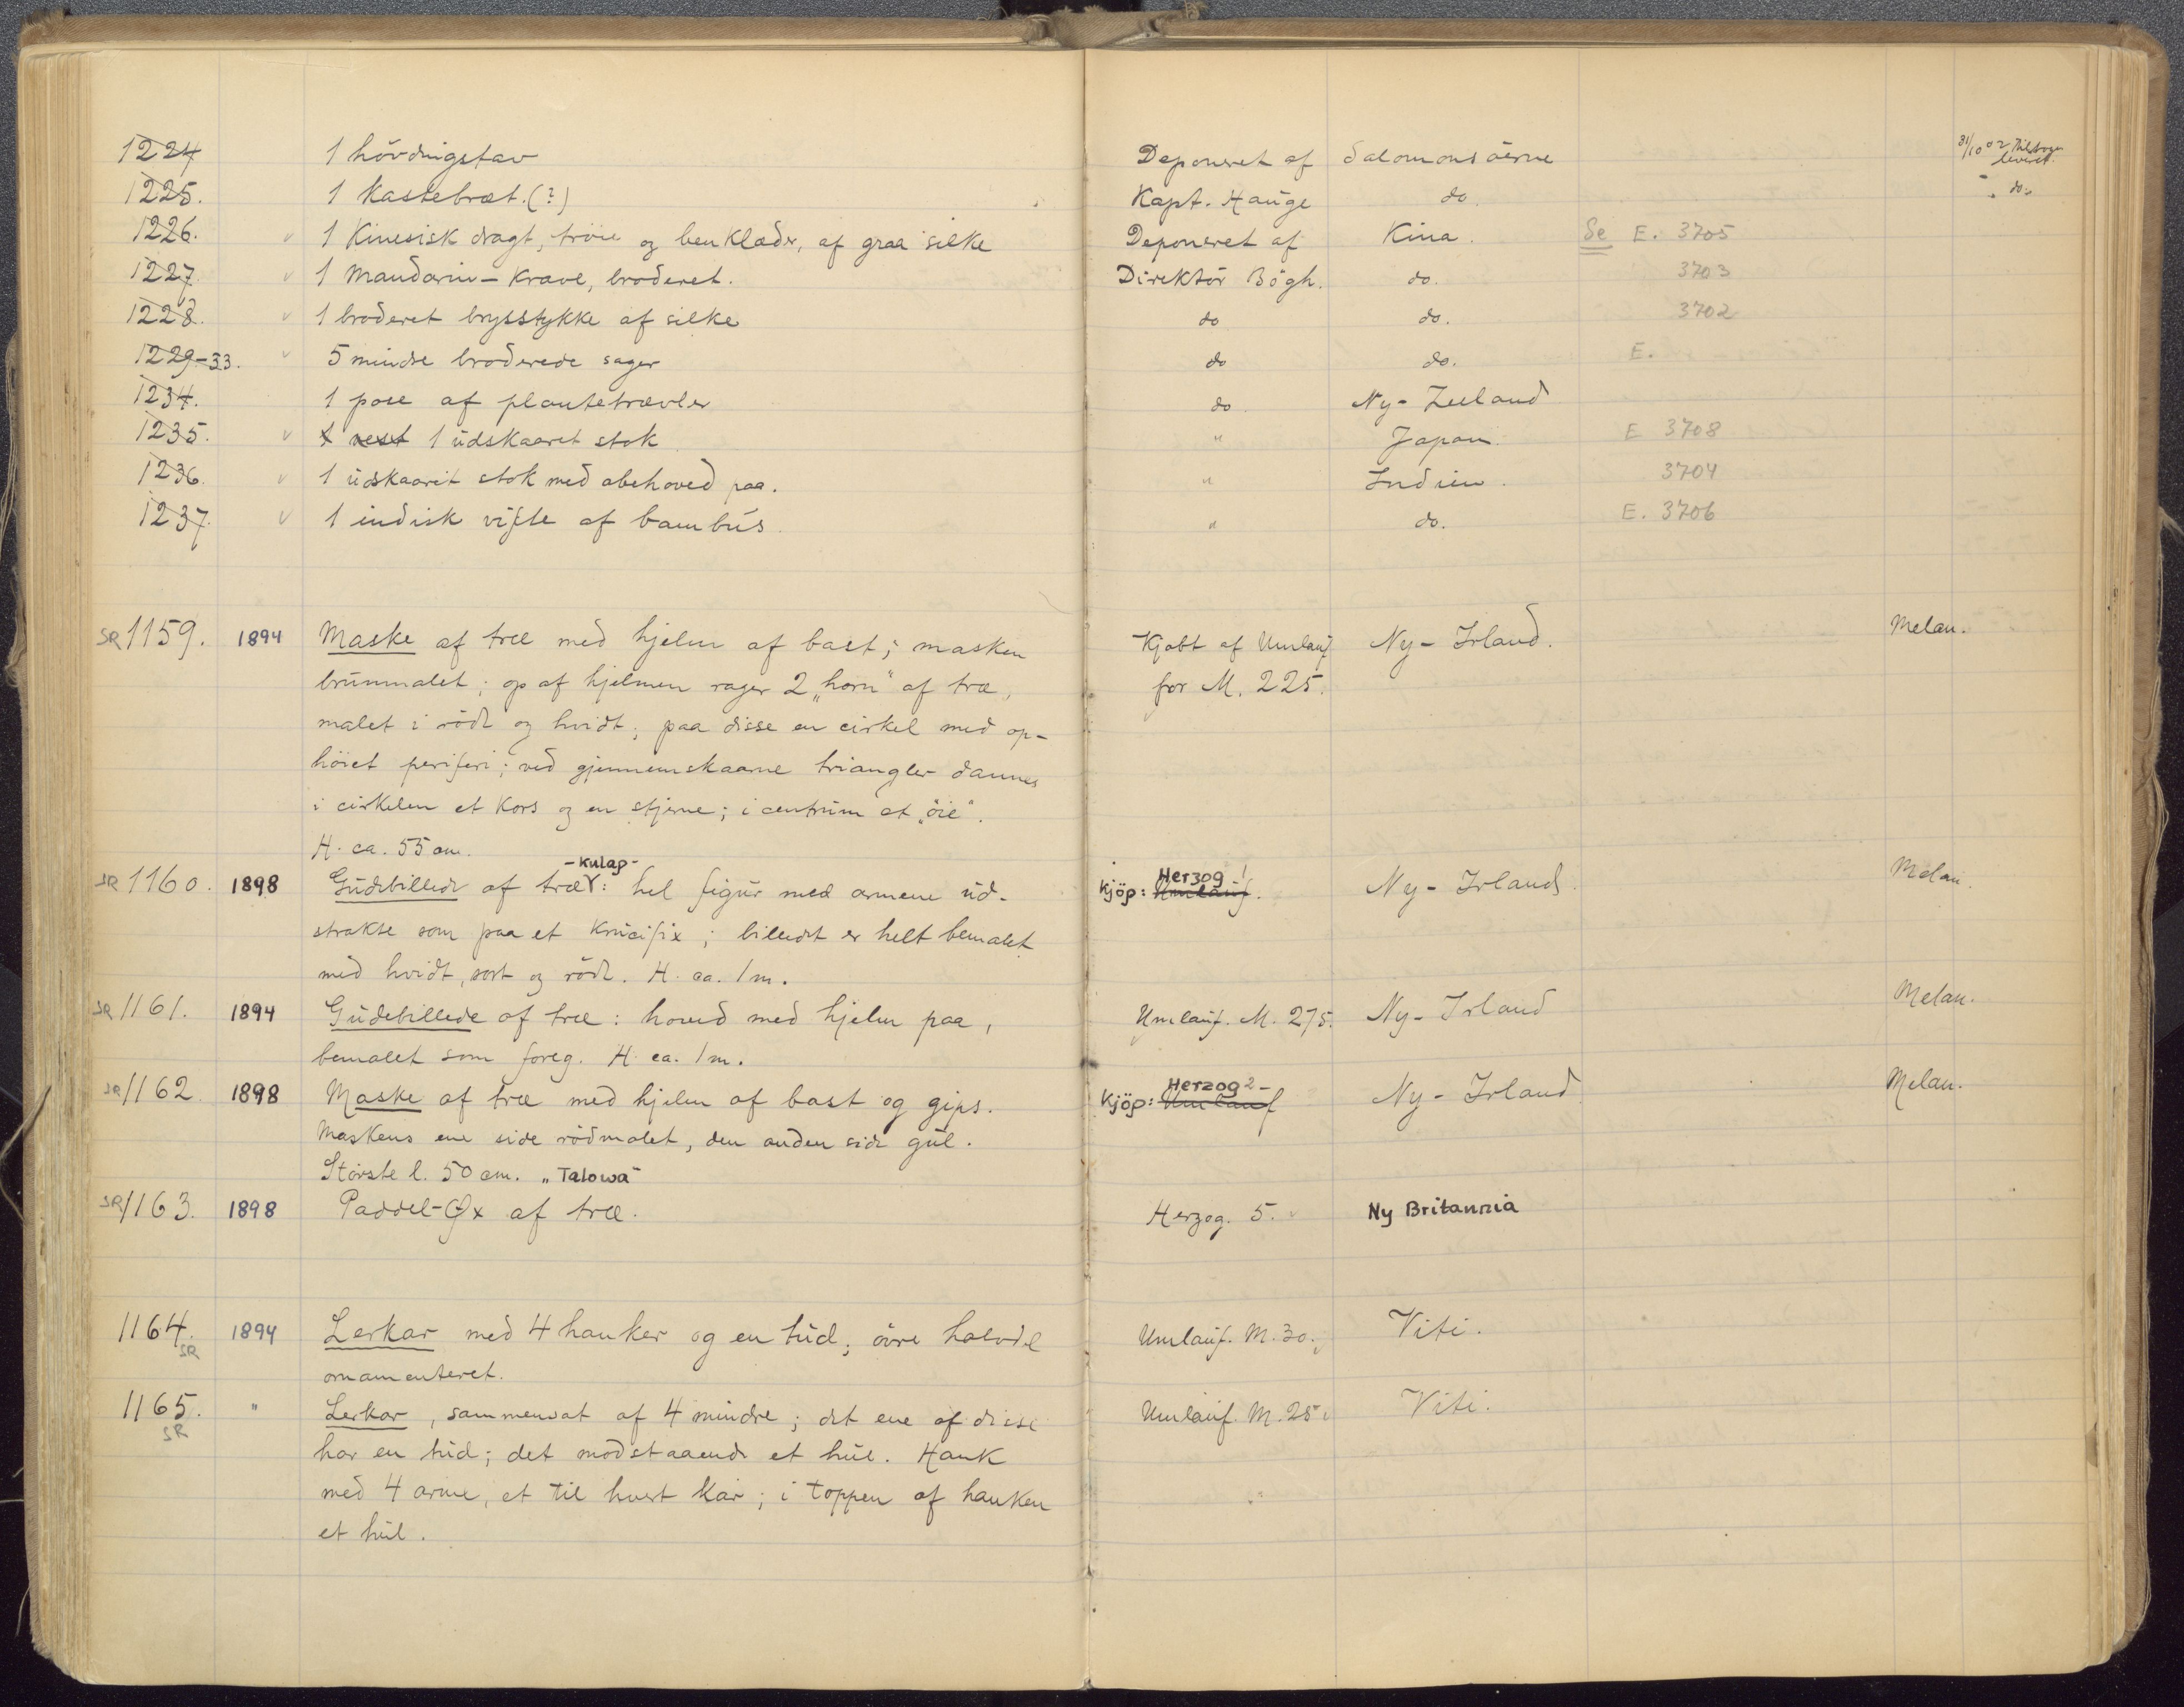 1224 1 hövdingstav Deponeret af Salomonsöerne 31/10 02 Tilbage
leveret.
1225. 1 Kastebræt. (?) Kapt. Hauge do. " do.
1226. v 1 Kinesisk dragt, tröie og benklæder, af graa silke Deponeret af Kina. Se E. 3705
1227. v 1 Mandarin-Krave, broderet. Direktör Bögh. do. 3703
1228. v 1 broderet bryststykke af silke do do. 3702
1229-33. v 5 mindre broderede sager do do. E.
1234. 1 pose af plantetrævler do Ny-Zeeland
1235. v 1 vest 1 udskaaret stok " Japan. E 3708
1236. v 1 udskaaret stok med abehoved paa. " Indien. 3704
1237. v 1 indisk vifte af bambus. " do. E. 3706
SR 1159. 1894 Maske af træ med hjelm af bast; masken Kjøbt af Umlauf Ny-Irland. Melan.
brunmalet; op af hjelmen rager 2 „horn" af træ, for M. 225.
malet i rödt og hvidt; paa disse en cirkel med op-
höiet periferi; ved gjennemskaarne triangler dannes
i cirkelen et Kors og en stjerne; i centrum et „öie".
H. ca. 55 cm.
-Kulap- Herzog 1
SR 1160. 1898 Gudebillede af træ: hel figur med armene ud- Kjöp: Umlauf. Ny-Irland. Melan.
strakte som paa et Krucifix; billedet er helt bemalet
med hvidt, sort og rödt. H. ca. 1 m.
SR 1161. 1894 Gudebillede af træ: hoved med hjelm paa, Umlauf. M. 275. Ny-Irland Melan.
bemalet som foreg. H. ca. 1 m.
Herzog 2-
SR 1162. 1898 Maske af træ med hjelm af bast og gips. Kjöp: Umlauf Ny-Irland Melan.
Maskens ene side rödmalet, den anden side gul.
Störste l. 50 cm. „Talowa"
SR 1163. 1898 Paddel-Øx af træ. Herzog. 5. Ny Britannia
1164. SR 1894 Lerkar med 4 hanker og en tud; övre halvdel Umlauf. M. 30. Viti.
ornamenteret.
1165. SR " Lerkar, sammensat af 4 mindre; det ene af disse Umlauf. M. 25. Viti.
har en tud; det modstaaende et hul. Hank
med 4 arme, et til hvert kar; i toppen af hanken
et hul.